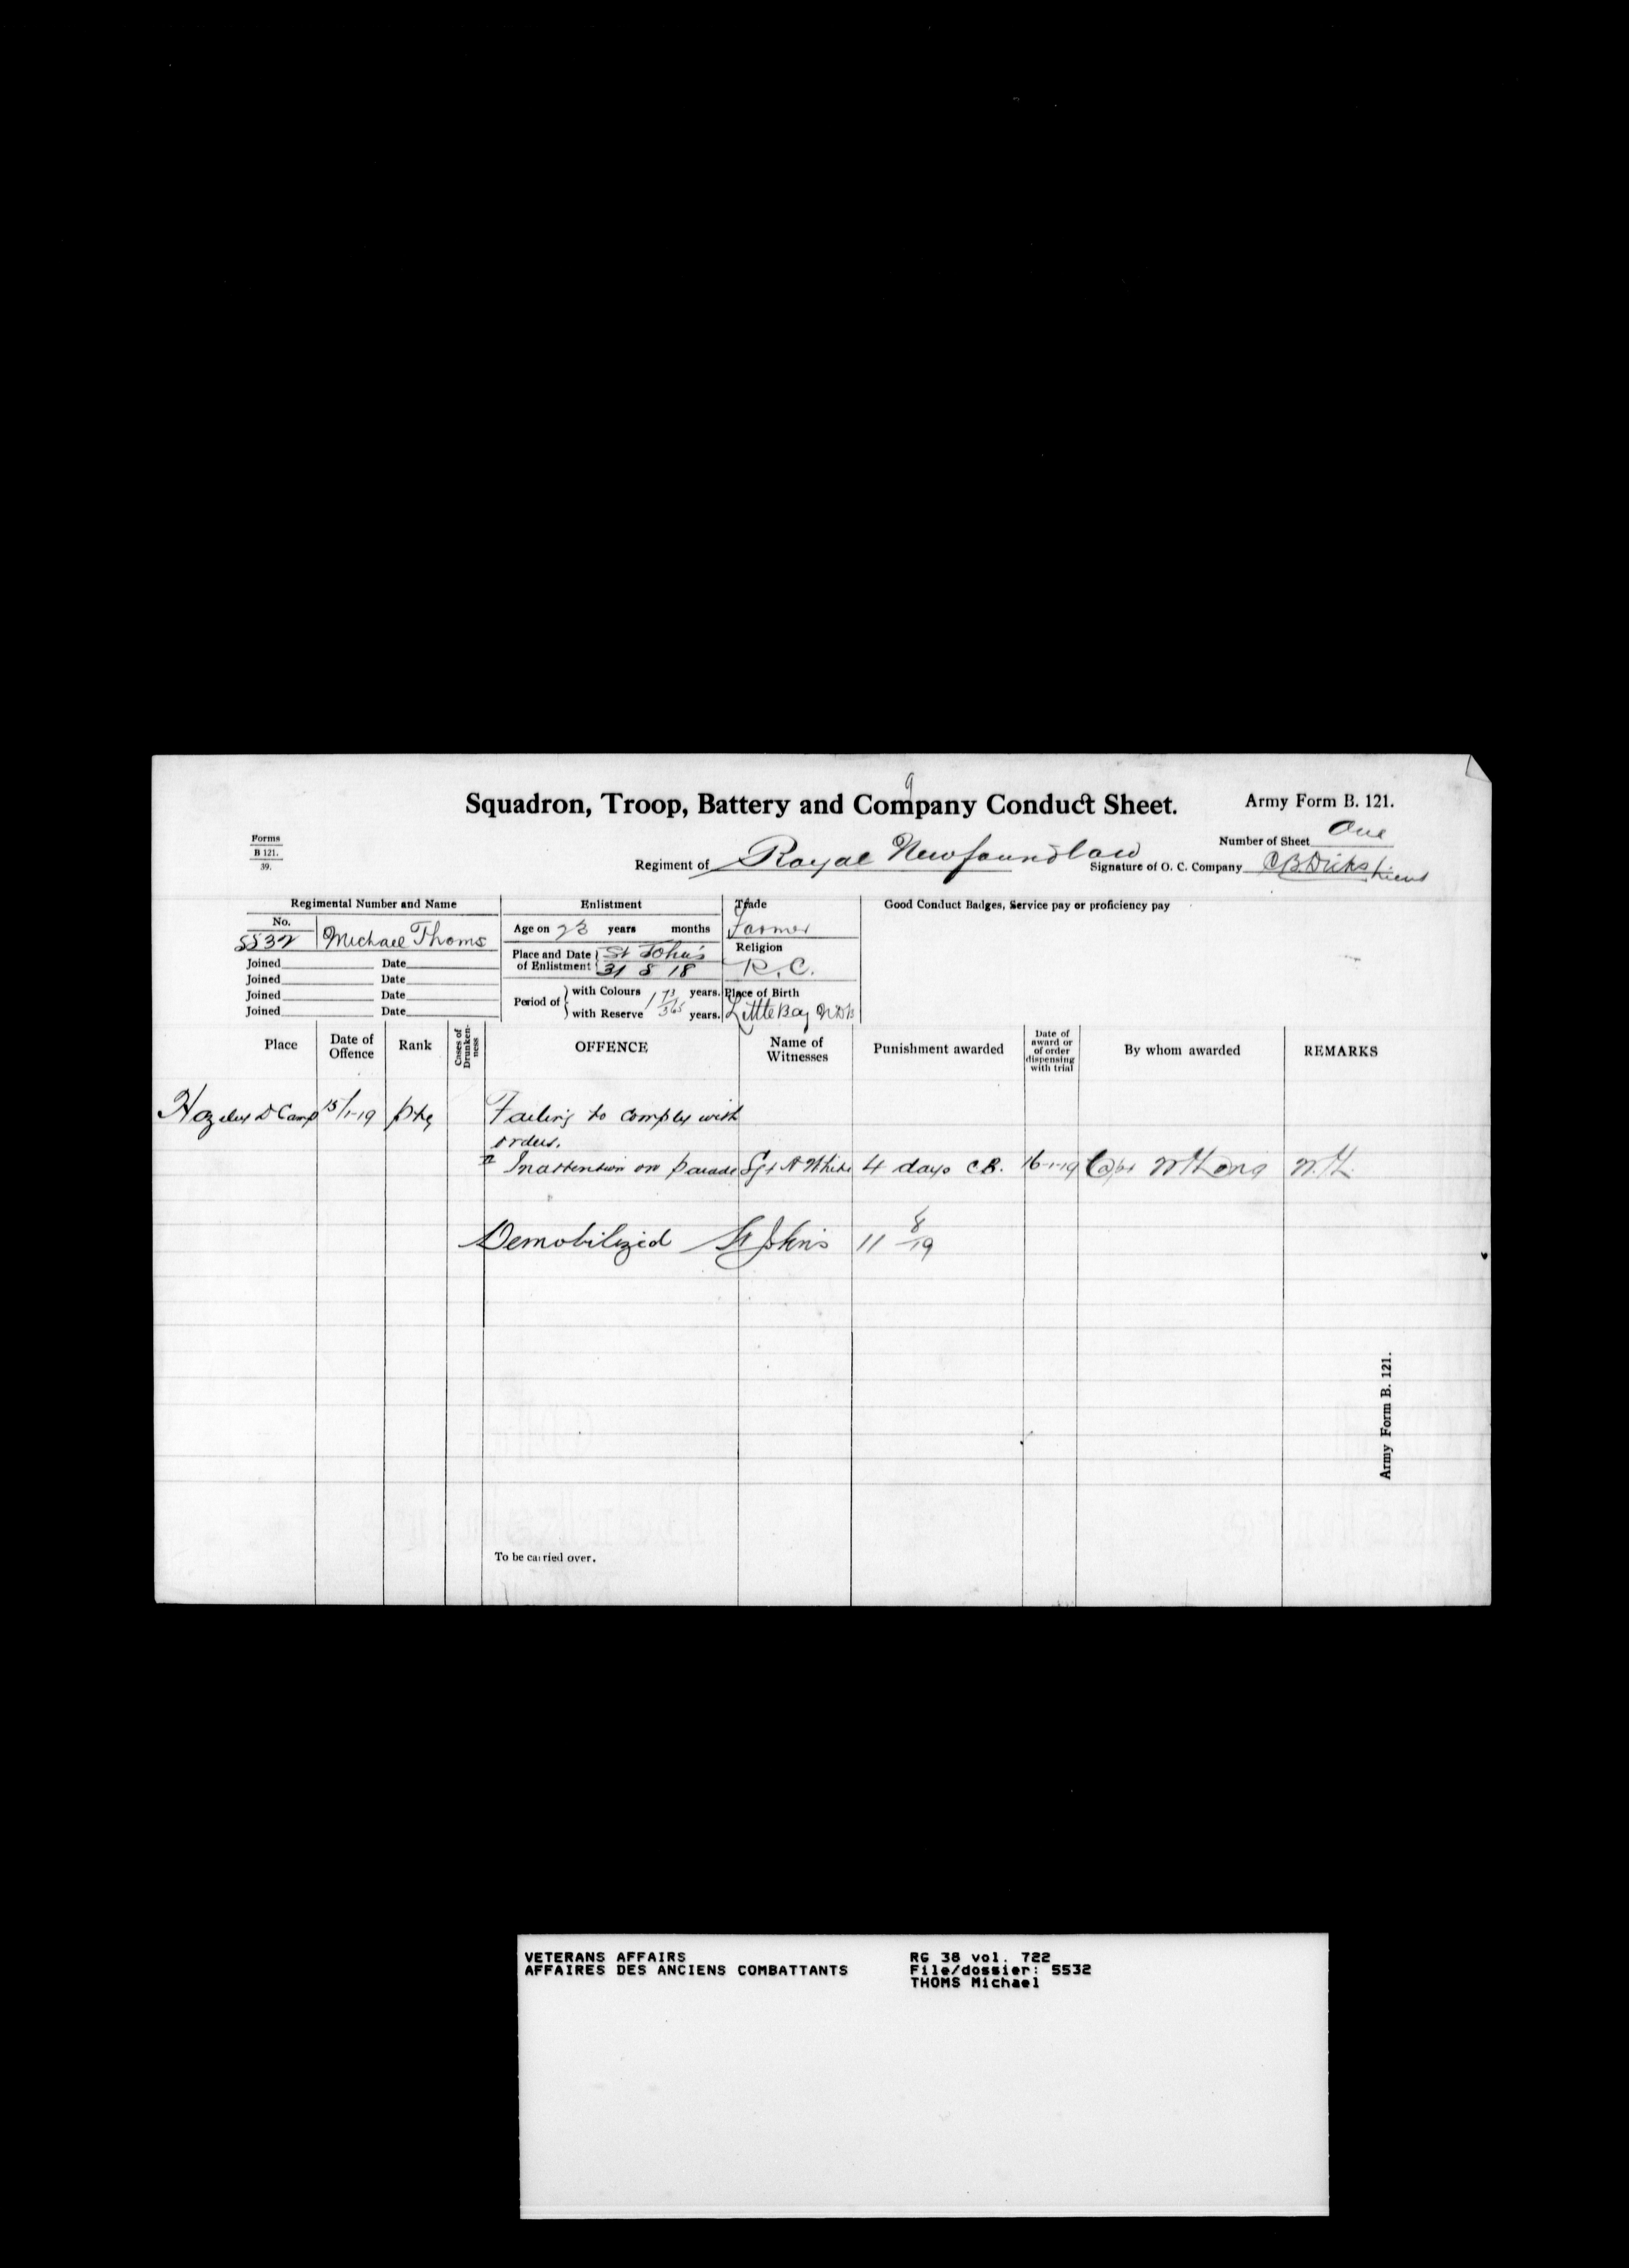 9
Squadron, Troop, Battery and Company Conduct Sheet.
Army Form B. 121.
Forms
B 121.
39.
Number of Sheet One
Regiment of Royal Newfoundland
Signature of O. C. Company C B Dicks Lieut
Regimental Number and Name
Enlistment
Trade
Good Conduct Badges, Service pay or proficiency pay
No.
5532 Michael Thoms
Age on 23 years months
Farmer
Religion
R. C.
Place and Date of Enlistment St John's 31 8 18
Joined Date
Joined Date
Joined Date
Joined Date
Period of with Colours 1 73/365 years.
with Reserve years.
Place of Birth
Little Bay NDB
Place
Date of Offence
Rank
Cases of Drunkenness
OFFENCE
Name of Witnesses
Punishment awarded
Date of award or of order dispensing with trial
By whom awarded
REMARKS
Camp 15/1-19 Pte Failing to comply with
orders.
2 Inattention on parade Sgt A White 4 days C.B. 16-1-19 Capt
Demobilized St John's 11 8/19
Army Form B. 121.
To be carried over.
VETERANS AFFAIRS
AFFAIRES DES ANCIENS COMBATTANTS
RG 38 vol. 722
File/dossier: 5532
THOMS Michael